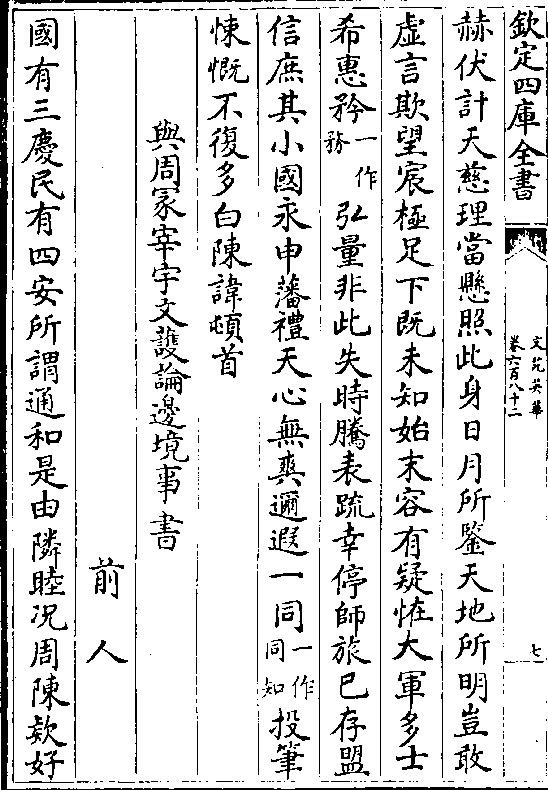 欽定四庫全書
文苑英華
卷六百八十二
七
赫伏計天慈理當懸照此身日月所鑒天地所明豈敢
虚言欺望宸極足下既未知始末容有疑怪大軍多士
希惠矜一作務弘量非此失時騰表疏幸停師旅已存盟
信庶其小國永申藩禮天心無爽邇遐一同一作同知投筆
悚慨不復多白陳諱頓首
與周冢宰宇文䕶論邊境事書
前人
國有三慶民有四安所謂通和是由隣睦况周陳欵好